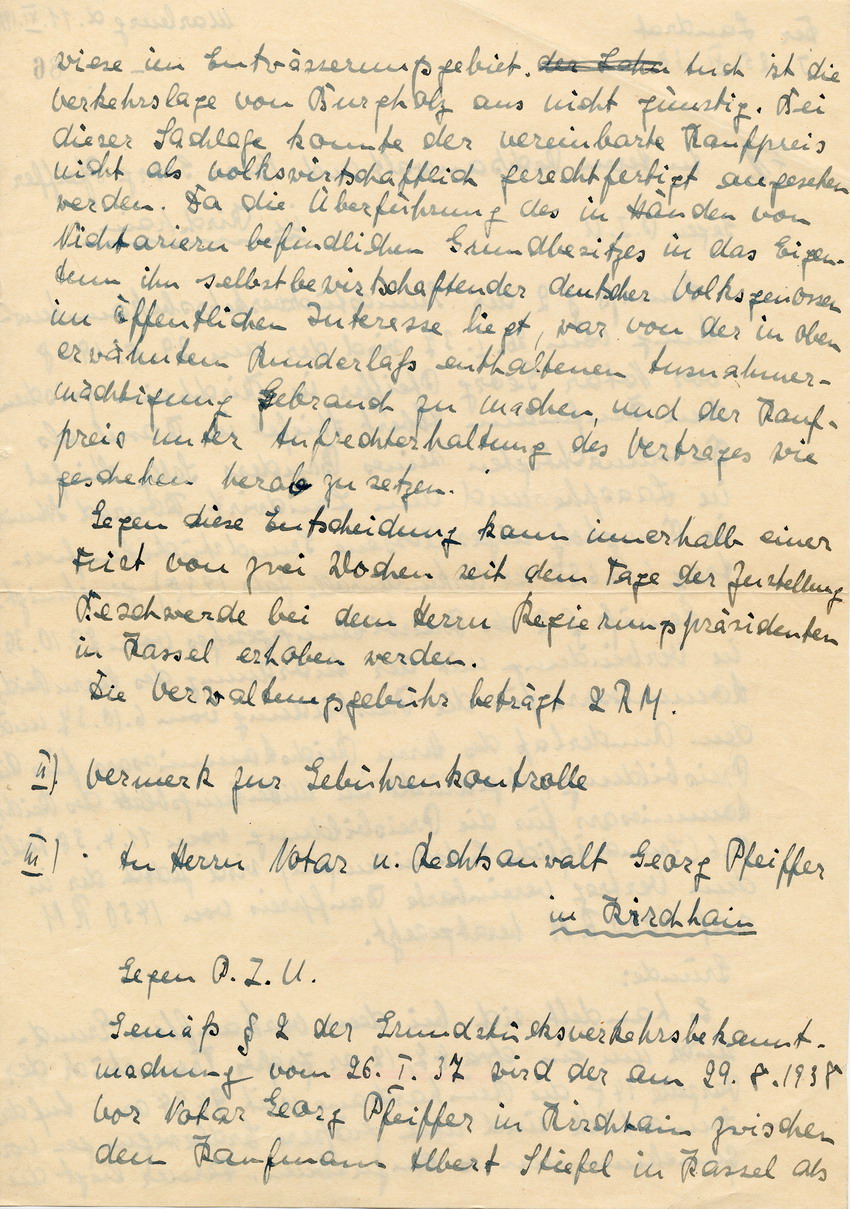 wiese im Entwässerungsgebiet. der Lahn Auch ist die
Verkehrslage von Burgholz aus nicht günstig. Bei
dieser Sachlage konnte der vereinbarte Kaufpreis
nicht als volkswirtschaftlich gerechtfertigt angesehen
werden. Da die Überführung des in Händen von
Nichtariern befindlichen Grundbesitzes in das Eigen-
tum ihn selbstbewirtschaftender deutscher Volksgenossen
im Öffentlichen Interesse liegt, war von der in oben
erwähntem Runderlaß enthaltenen Ausnahmeer-
mächtigung Gebrauch zu machen und der Kauf-
preis unter Aufrechterhaltung des Vertrages wie
geschehen herab zu setzen.
Gegen diese Entscheidung kann innerhalb einer
Frist von zwei Wochen seit dem Tage der Zustellung
Beschwerde bei dem Herrn Regierungspräsidenten
in Kassel erhoben werden.
Die Verwaltungsgebühr beträgt 2 RM.
II) Vermerk zur Gebührenkontrolle
III) An Herrn Notar u. Rechtsanwalt Georg Pfeiffer
in Kirchhain
Gegen P. Z. U.
Gemäß § 2 der Grundstücksverkehrsbekannt-
machung vom 26. I. 37 wird der am 29. 8. 1938
vor Notar Georg Pfeiffer in Kirchhain zwischen
dem Kaufmann Albert Stiefel in Kassel als